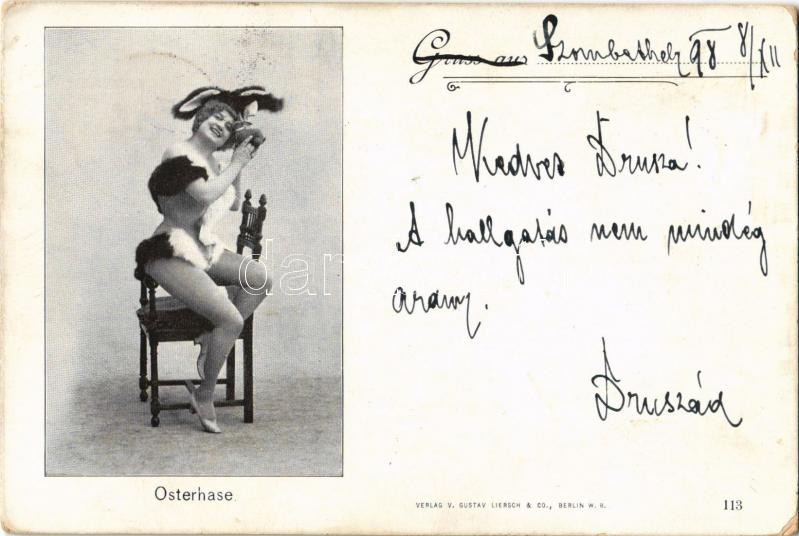 Gruss aus Szombathely 98 8/XII
Kedves Drusza!
A hallgatás nem mindég
arany.
Druszád
Osterhase.
VERLAG V. GUSTAV LIERSCH & CO., BERLIN W. 8.
113